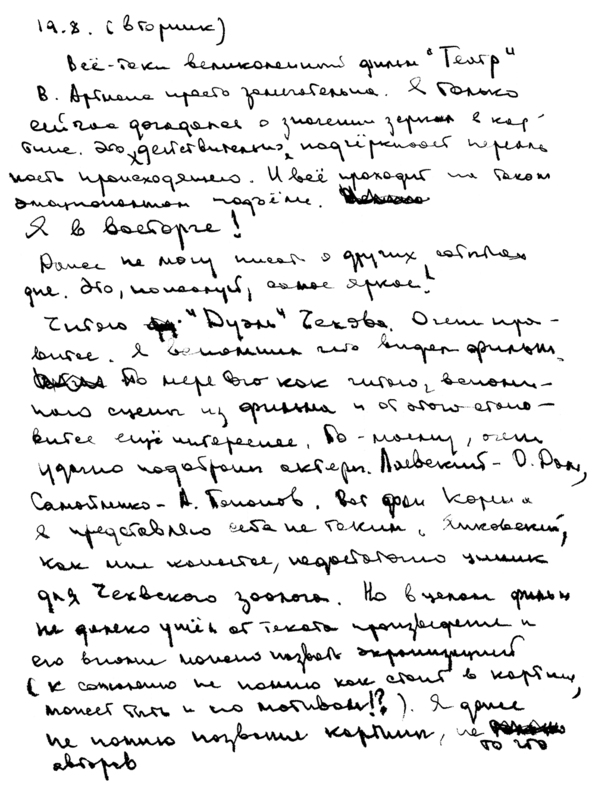 19.8. (вторник)
Всё-таки великолепный фильм "Театр"
В. Артмане просто замечательна. Я только
сейчас догадался о значении зеркал в кар-
тине. Это, действительно, подчёркивает нереаль
ность происходящего. И всё проходит на таком
эмоциональном подъёме.
Я в восторге!
Далее не могу писать о других событиях
дня. Это, пожалуй, самое яркое!
Читаю "Дуэль" Чехова. Очень нра-
вится. Я вспомнил что видел фильм.
По мере того как читаю, вспоми-
наю сцены из фильма и от этого стано-
вится ещё интереснее. По-моему, очень
удачно подобраны актеры. Лаевский - О. Даль,
Самойленко - А. Папанов. Вот фон Корена
я представляю себе не таким. Янковский,
как мне кажется, недостаточно умник
для Чеховского зоолога. Но в целом фильм
не далеко ушёл от текста произведения и
его вполне можно назвать экранизацией
(к сожалению не помню как стоит в картине,
может быть и по мотивам!?). Я даже
не помню название картины, не то что
авторов